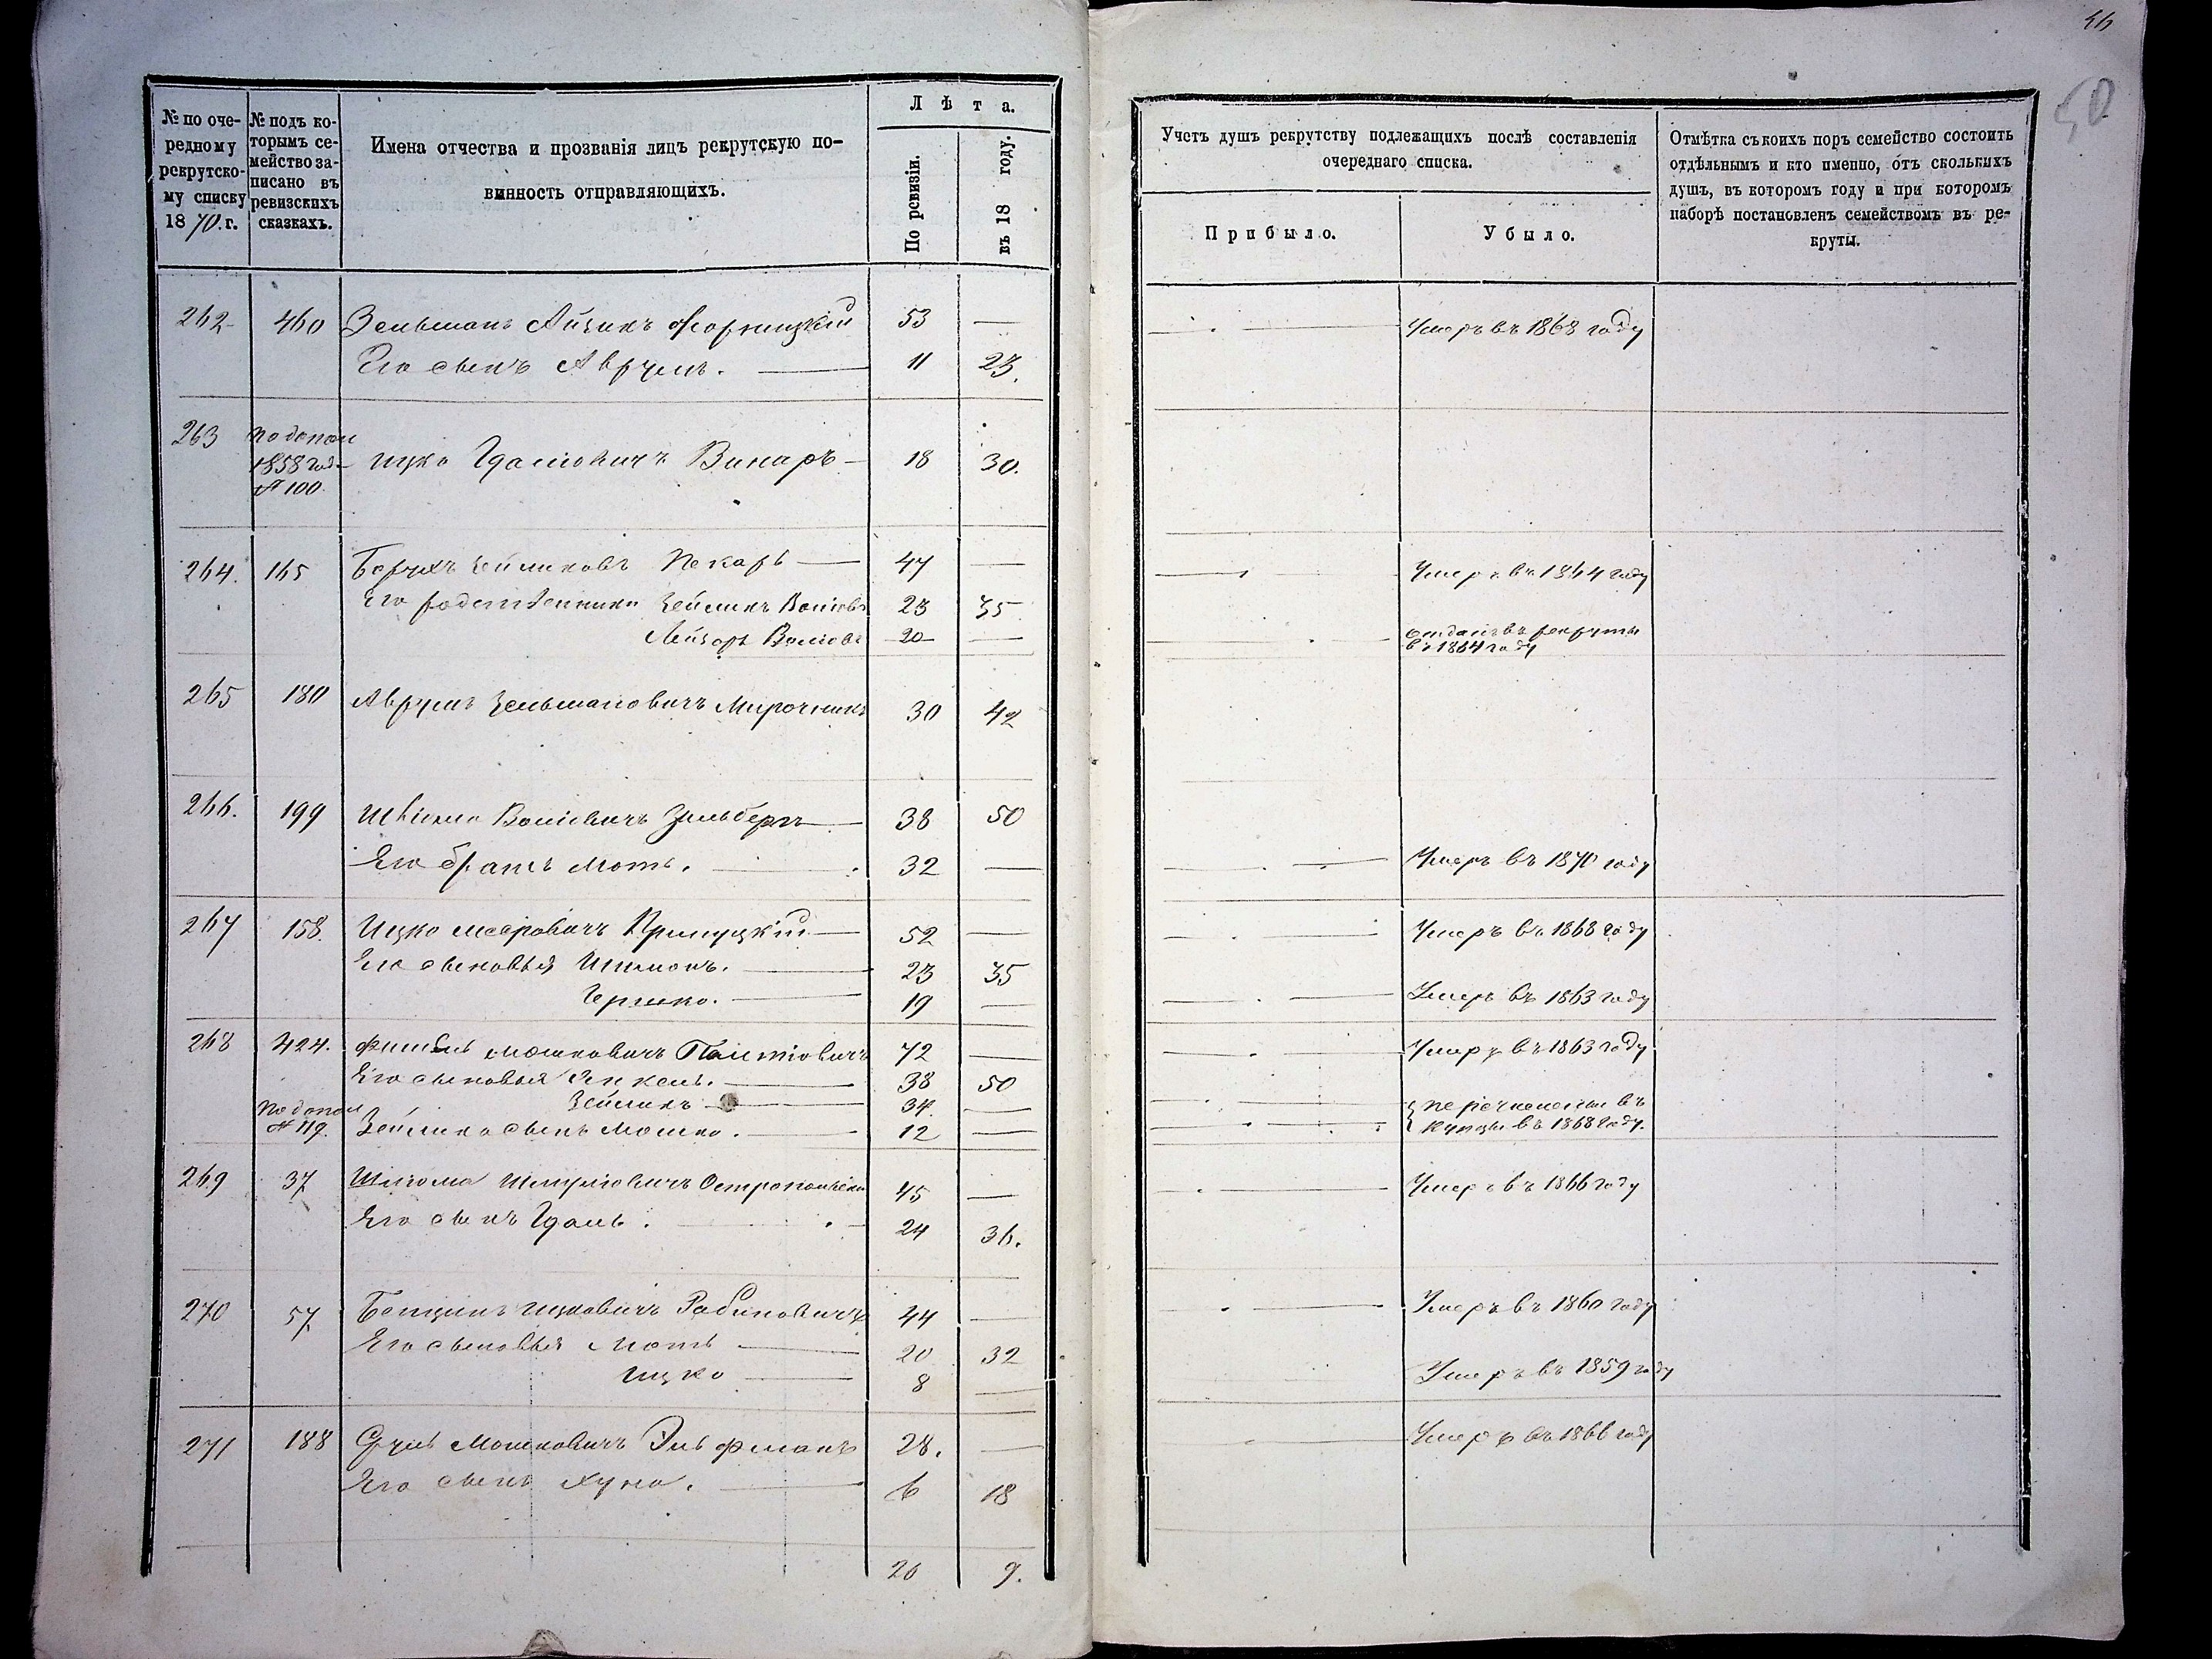 46
50
№ по оче-
редному
рекрутско-
му списку
1870. г.
№ подъ ко-
торымъ се-
мейство за-
писано въ
ревизскихъ
сказкахъ.
Имена отчества и прозванія лицъ рекрутскую по-
винность отправляющихъ.
Лѣта.
По ревизіи.
въ 18 году.
Учетъ душъ рекрутству подлежащихъ послѣ составленія
очереднаго списка.
Прибыло.
Убыло.
Отмѣтка съ коихъ поръ семейство состоитъ
отдѣльнымъ и кто именно, отъ сколькихъ
душъ, въ котором году и при которомъ
наборѣ постановленъ семействомъ въ ре-
круты.
262 460 Зельманъ Айзикъ 53 — Умеръ въ 1868 году
Его сынъ Аврумъ. 11 23.
263 по допол
1858 год. Ицко Гдаліовичъ Винаръ 18 30.
№ 100.
264. 165 Борухъ Зейликовъ Пекарь 47 — Умеръ въ 1864 году
Его родственники Зейликъ Воліовъ 23 35
Лейзоръ Воліовъ 20 — отданъ въ рекруты
въ 1864 году
265 180 Аврумъ Зельмановичъ Мирочникъ 30 42
266. 199 Воліовичъ Зильберъ 38 50
Его братъ Моть. 32 — Умеръ въ 1870 году
267 158. Ицко Мееровичъ Прилуцкій 52 — Умеръ въ 1868 году
Его сыновья Шимонъ. 23 35
Гершко. 19 — Умеръ въ 1863 году
268 424. Фишель Мошковичъ 72 — Умеръ въ 1863 году
Его сыновья Янкель. 38 50
Зейликъ 34. — перечислены въ
по допол
№ 119. Зейлика сынъ Мошко. 12 — купцы въ 1868 году.
269 37 Шліома Шмуліовичъ 45 — Умеръ въ 1866 году
Его сынъ Гдаль. 24 36.
270 57 Бенціонъ Ицковичъ Рабиновичъ 44 — Умеръ въ 1860 году
Его сыновья Моть 20 32
Ицко 8 — Умеръ въ 1859 году
271 188 Сруль Мошковичъ 28. — Умеръ въ 1866 году
Его сынъ Хуна. 6 18
20 9.